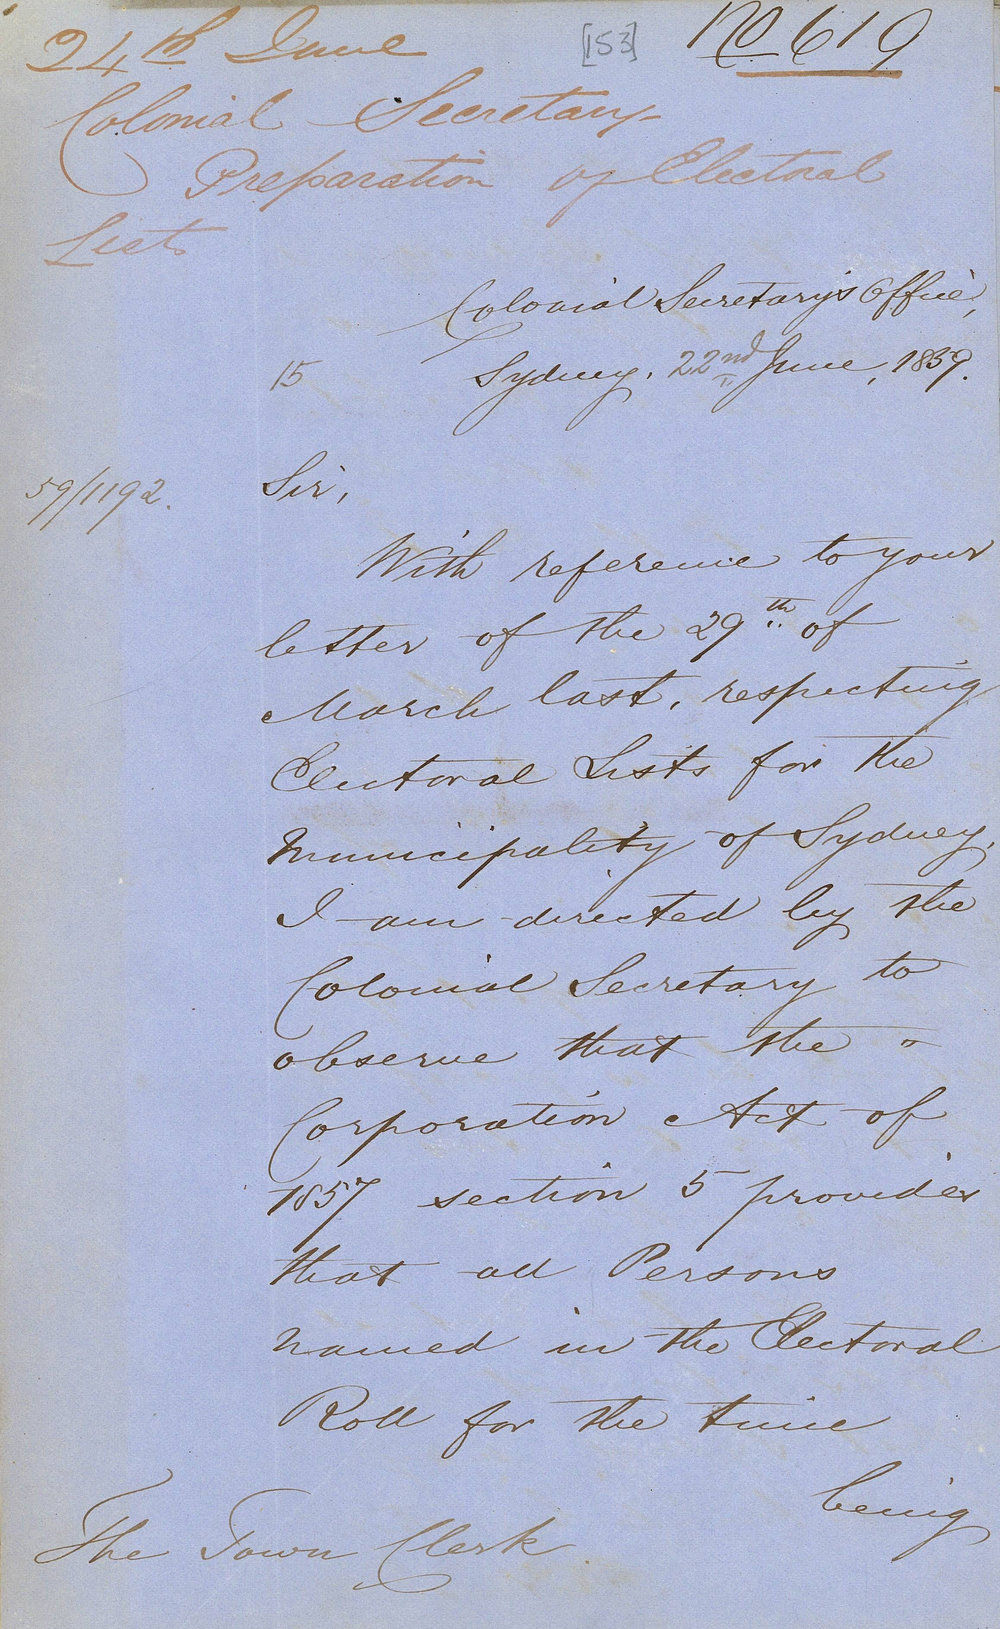 24th June [153] No 619
Colonial Secretary
Preparation of Electoral
Lists
Colonial Secretary's Office,
15 Sydney, 22nd June, 1859.
59/1192.
Sir,
With reference to your
letter of the 29th of
March last, respecting
Electoral Lists for the
Municipality of Sydney,
I am directed by the
Colonial Secretary to
observe that the "
Corporation Act of
1857 section 5 provides
that all Persons
named in the Electoral
Roll for the time
being
The Town Clerk